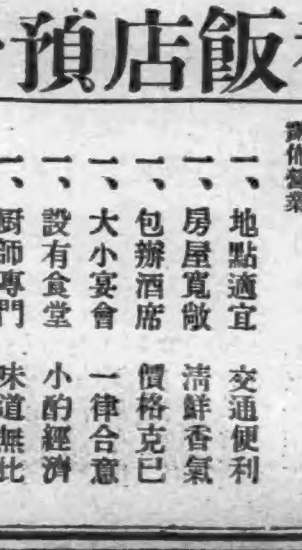 飯店預
一、地點適宜 交通便利
一、房屋寬敞 清鮮香氣
一、包辦酒席 價格克已
一、大小宴會 一律合意
一、設有食堂 小酌經濟
一、厨師專門 味道無比